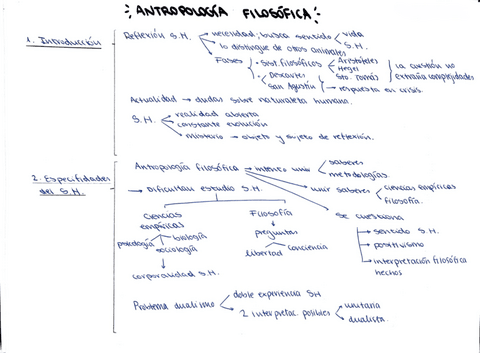 ANTROPOLOGÍA FILOSÓFICA
1. Introducción
Reflexión S.H.
necesidad, busca sentido
vida
S.H.
lo distingue de otros animales
Fases
Sist. filosóficos
Aristóteles
Hegel
Sto. Tomás
la cuestión no
extraña complejidades
Descartes
San Agustín
respuesta en crisis.
Actualidad → dudas sobre naturaleza humana.
S.H.
realidad abierta
constante evolución
misterio → objeto y sujeto de reflexión.
2. Especifidades
del S.H.
Antropología filosófica → intento unir
saberes
metodologías.
unir saberes
ciencias empíricas
filosofía.
→ Dificultan estudio S.H.
Ciencias
empíricas
psicología
biología
sociología
corporalidad S.H.
Filosofía
preguntas
libertad
conciencia
se cuestiona
→ sentido S.H.
→ positivismo
→ interpretación filosófica
hechos
Problema dualismo
doble experiencia SH
2 interpretac. posibles
unitaria
dualista.